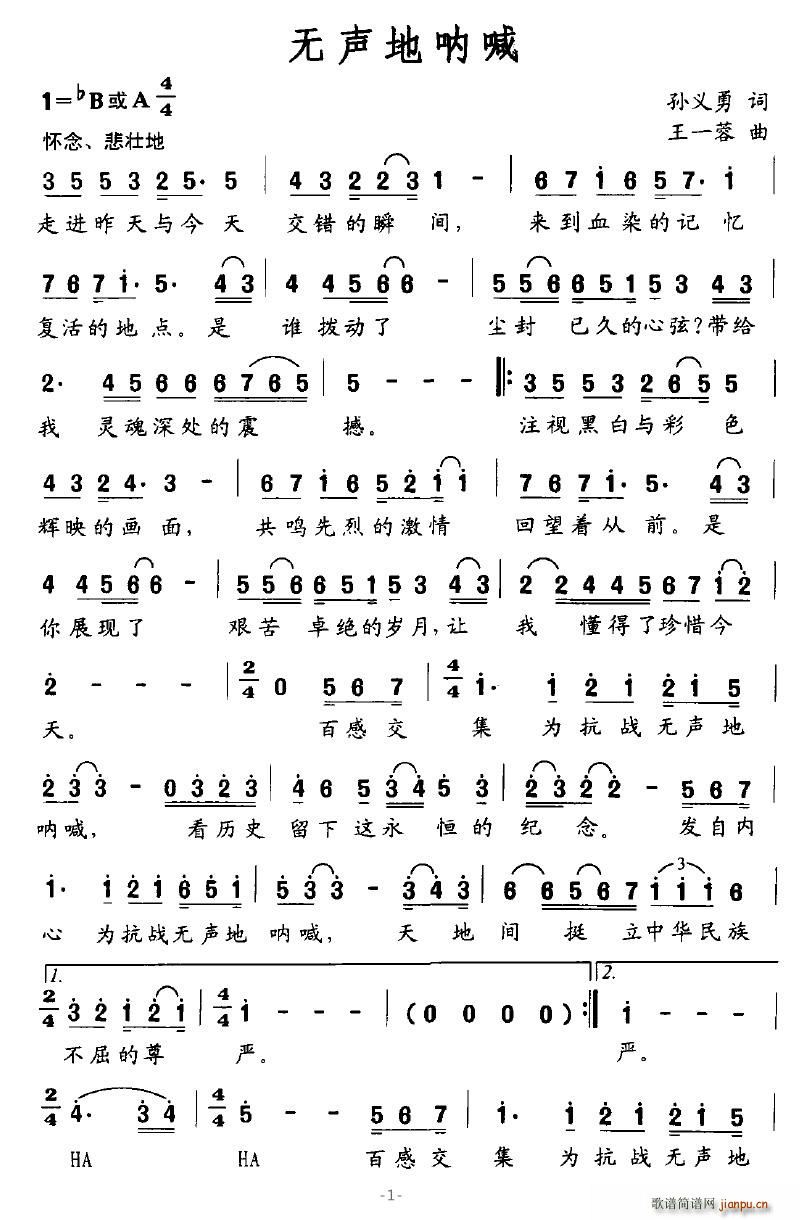 无声地呐喊
1=♭B或A 4/4
孙义勇 词
怀念、悲壮地
王一蓉 曲
3 5 5 5 3 2 5· 5 | 4 3 2 2 2 3 1 - | 6 7 1 6 5 7· 1 |
走进昨天与今天 交错的瞬 间, 来到血染的记忆
7 6 7 1· 5· 4 3 | 4 4 5 6 6 - | 5 5 6 6 5 1 5 3 4 3 |
复活的地点。是 谁拨动了 尘封 已久的心弦?带给
2· 4 5 6 6 6 7 6 5 | 5 - - - ‖: 3 5 5 5 3 2 6 5 5 |
我 灵魂深处的震 撼。 注视黑白与彩 色
4 3 2 4· 3 - | 6 7 1 6 5 2 1 1 | 7 6 7 1· 5· 4 3 |
辉映的画面, 共鸣先烈的激情 回望着从前。是
4 4 5 6 6 - | 5 5 6 6 5 1 5 3 4 3 | 2 2 4 4 5 6 7 1 2 |
你展现了 艰苦 卓绝的岁月,让 我 懂得了珍惜今
2 - - - | 2/4 0 5 6 7 | 4/4 1· 1 2 1 2 1 5 |
天。 百感交 集 为抗战无声地
2 3 3 - 0 3 2 3 | 4 6 5 3 4 5 3 | 2 3 2 2 - 5 6 7 |
呐喊, 看历史 留下这永 恒的 纪 念。 发自内
1· 1 2 1 6 5 1 | 5 3 3 - 3 4 3 | 6 6 5 6 7 1 1 1 6 |
3
心 为抗战无声地 呐喊, 天地间 挺 立中华民族
1. 2.
2/4 3 2 1 2 1 | 4/4 1 - - - | (0 0 0 0) :‖ 1 - - - |
不屈的尊 严。 严。
2/4 4· 3 4 | 4/4 5 - - 5 6 7 | 1· 1 2 1 2 1 5 |
HA HA 百感交 集 为抗战无声地
-1-
歌谱简谱网
jianpu.cn